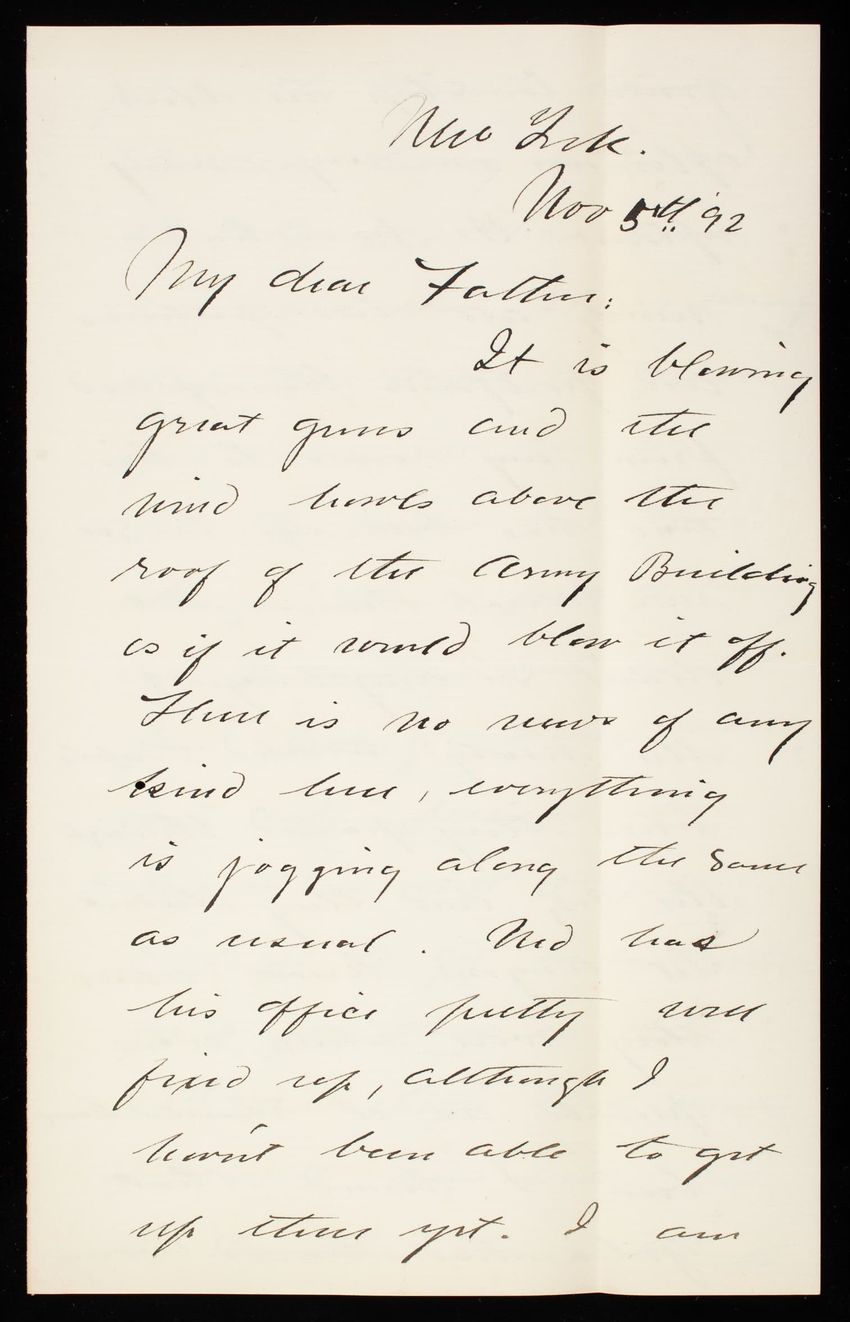 New York.
Nov 5th '92
My dear Father:
It is blowing
great guns and the
wind howls above the
roof of the Army Building
as if it would blow it off.
There is no news of any
kind here, everything
is jogging along the same
as usual. Ned has
his office pretty well
fixed up, although I
havn't been able to get
up there yet. I am